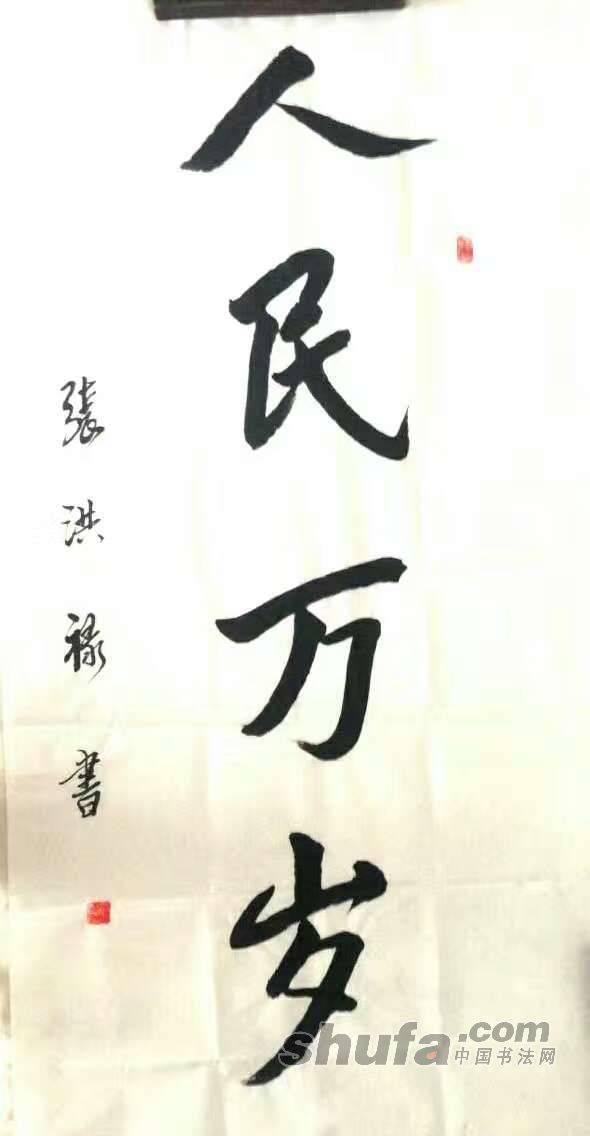 人民万岁
張洪禄書
shufa.com
中国书法网